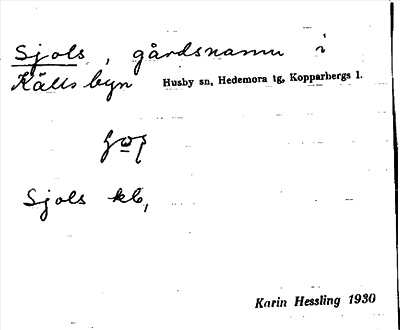 Sjols, gårdsnamn i
Källsbyn Husby sn, Hedemora tg, Kopparbergs l.
Sjols kb,
Karin Hessling 1930